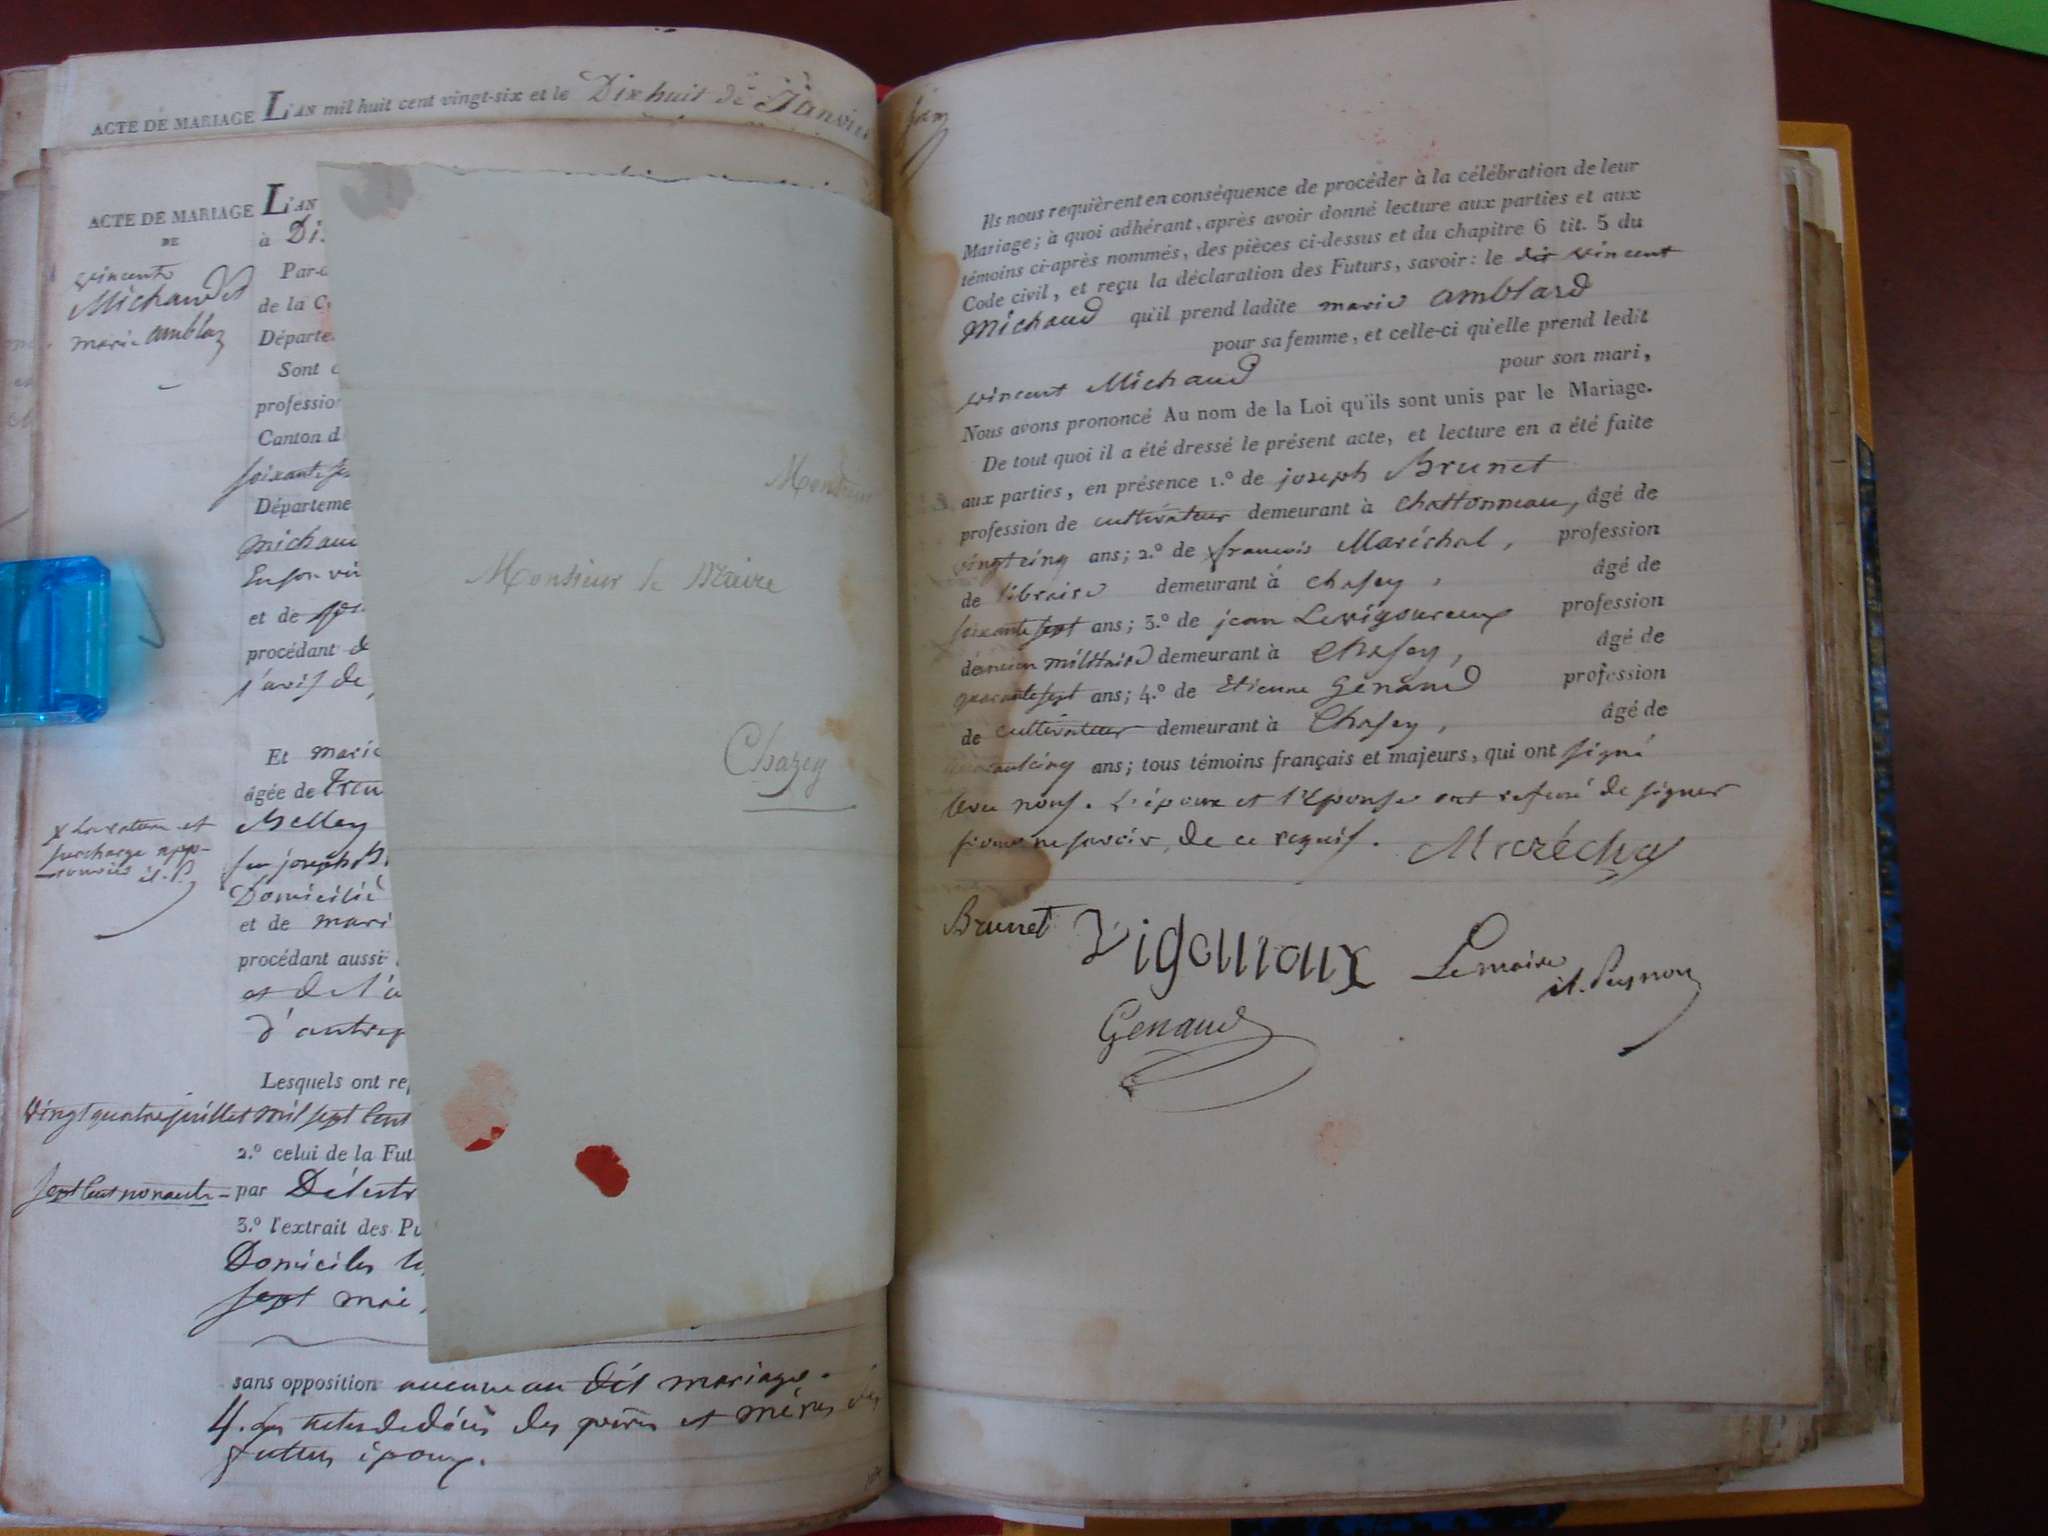 ACTE DE MARIAGE L'AN mil huit cent vingt-six et le Dixhuit de Janvier
ACTE DE MARIAGE L'AN
DE
à
vincent
Michaud et
marie amblar
Par-
de la
Départe
Sont
profession
Canton d
soixante
Départeme
michau
et de
procédant
l'avis de
Et marie
âgée de
x La rature et
surcharge app-
rouvées
Melley
feu joseph
Domicilié
et de mari
procédant aussi
et de l'a
d'autre
Lesquels ont re
vingt quatre juillet mil sept cent
2.º celui de la Fut
sept cent nonante - par
3.º l'extrait des Pu
Domiciles
sept mai
sans opposition aucune au dit mariage.
4. des pères et mères des
futurs époux.
Monsieur
Monsieur le Maire
Chazey
Ils nous requièrent en conséquence de procéder à la célébration de leur
Mariage; à quoi adhérant, après avoir donné lecture aux parties et aux
témoins ci-après nommés, des pièces ci-dessus et du chapitre 6 tit. 5 du
Code civil, et reçu la déclaration des Futurs, savoir: le dit vincent
Michaud qu'il prend ladite marie amblard
pour sa femme, et celle-ci qu'elle prend ledit
vincent Michaud pour son mari,
Nous avons prononcé Au nom de la Loi qu'ils sont unis par le Mariage.
De tout quoi il a été dressé le présent acte, et lecture en a été faite
aux parties, en présence 1.º de joseph Brunet
profession de cultivateur demeurant à chattonneau, âgé de
vingt cinq ans; 2.º de françois Maréchal, profession
de libraire demeurant à chasey, âgé de
soixante sept ans; 3.º de jean Levigoureux profession
d'ancien militaire demeurant à Chasey, âgé de
quarante sept ans; 4.º de Etienne Genaud profession
de cultivateur demeurant à Chasey, âgé de
ans; tous témoins français et majeurs, qui ont signé
avec nous. L'époux et l'Epouse ont refusé de signer
ne savoir, de ce requis. Maréchal
Brunet Vigouroux Lemaire
Genaud